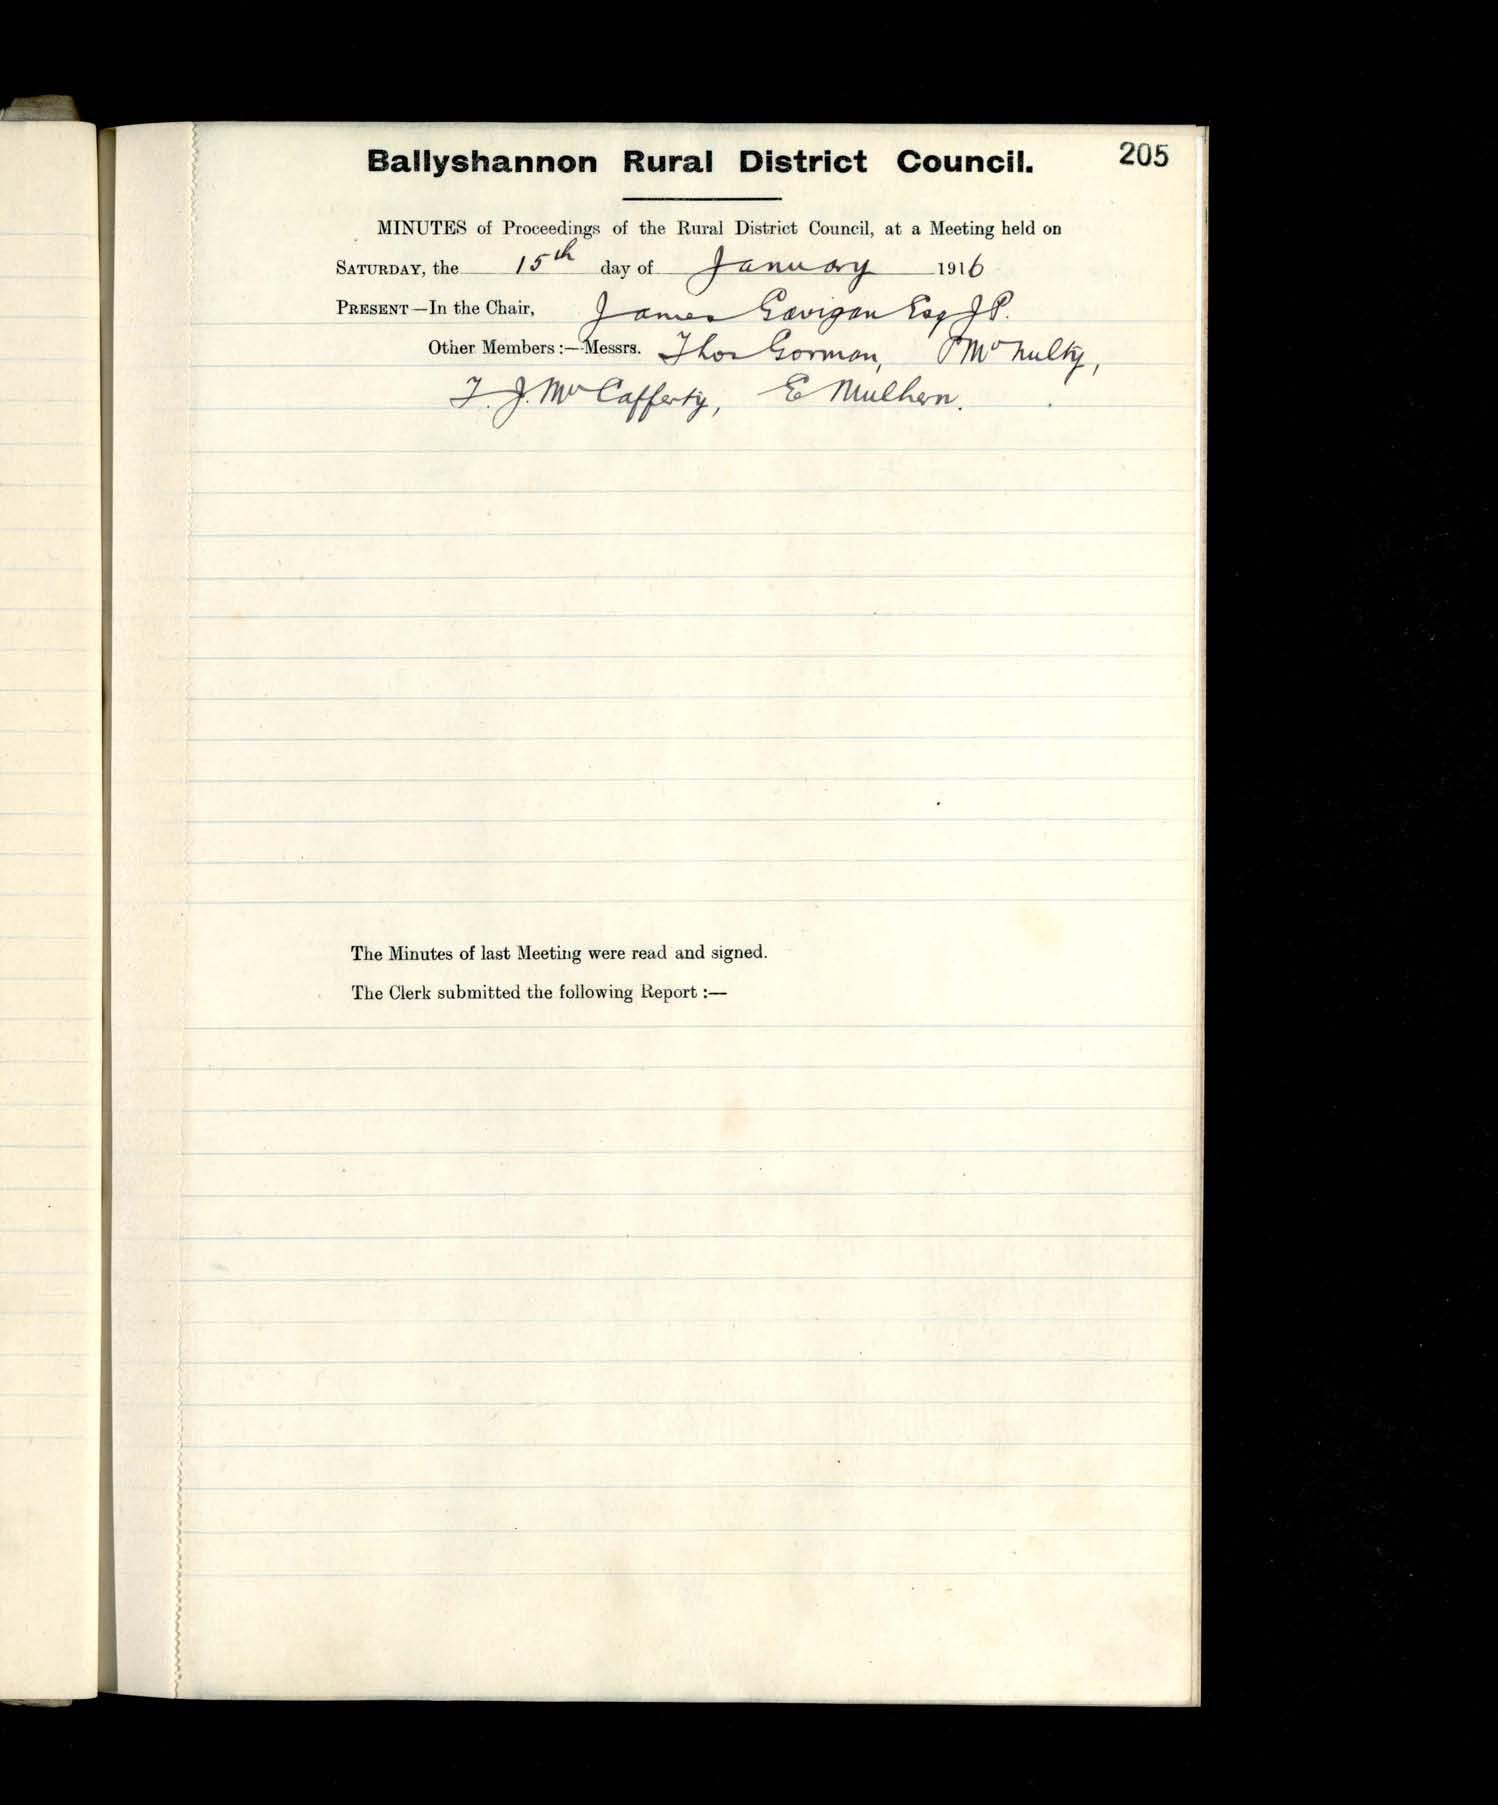 Ballyshannon Rural District Council. 205
MINUTES of Proceedings of the Rural District Council, at a Meeting held on
SATURDAY, the 15th day of January 1916
PRESENT—In the Chair, James Gavigan Esq J.P.
Other Members:—Messrs. Thos Gorman, P McNulty,
T. J. McCafferty, E Mulhern.
The Minutes of last Meeting were read and signed.
The Clerk submitted the following Report :—